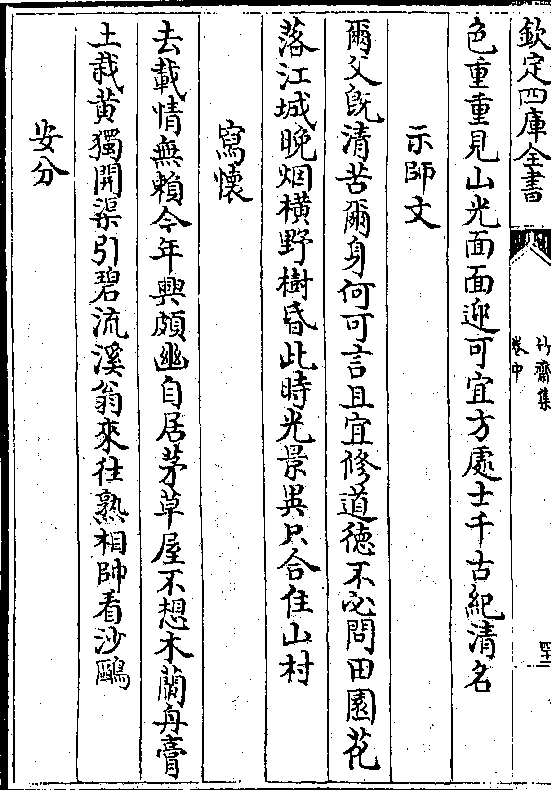 欽定四庫全書
竹齋集
卷中
四十二
色重重見山光面面迎可宜方處士千古紀清名
示師文
爾父旣清苦爾身何可言且宜修道徳不必問田園花
落江城晚烟横野樹昏此時光景異只合住山村
寫懷
去載情無賴今年興頗幽自居茅草屋不想木蘭舟膏
土栽黄獨開渠引碧流溪翁來往熟相帥看沙鷗
安分